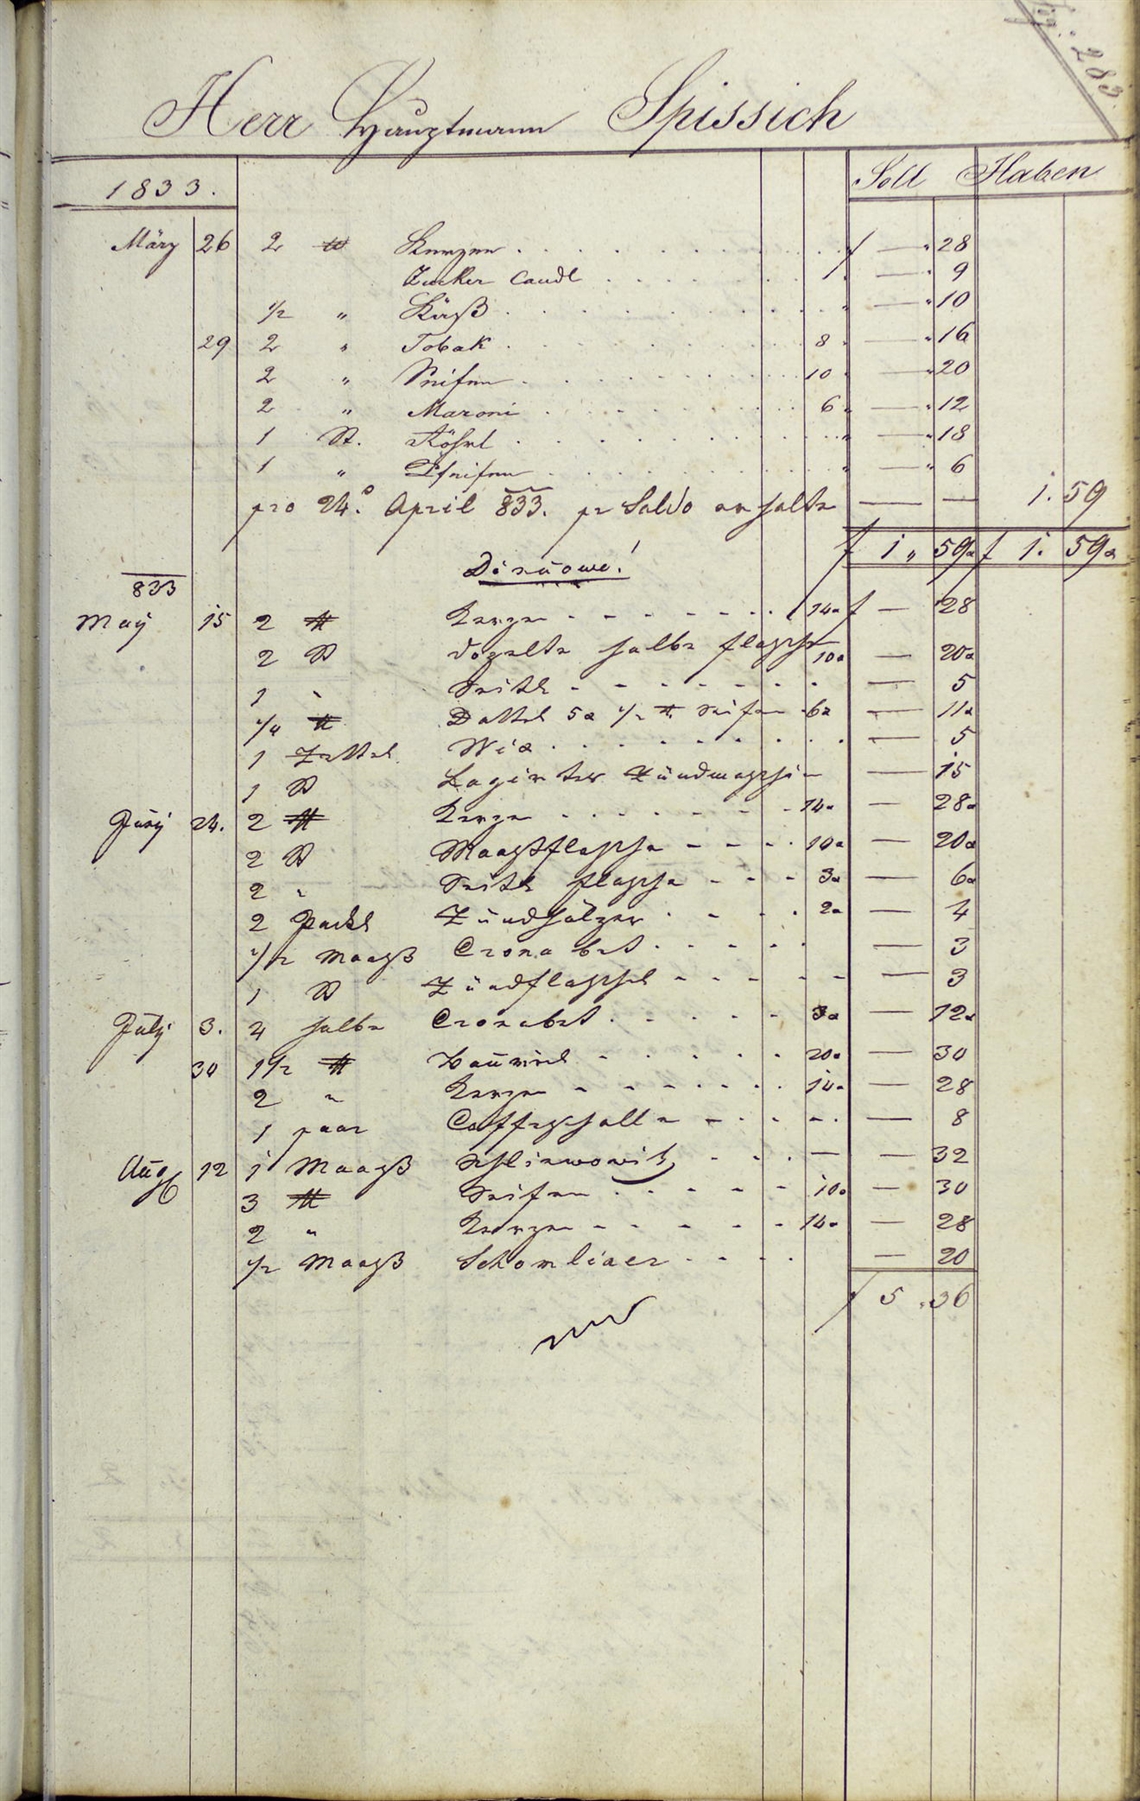 fol: 283
Herr Hauptmann Spissich
1833. Soll Haben
März 26 2 ℔ Kerzen f — " 28
Zucker Candl — " 9
1/2 " Käß — " 10
29 2 " Tobak 8 — " 16
2 " Seifen 10 — " 20
2 " Maroni 6 — " 12
1 St. Röhrl — " 18
1 " Pfeifen — " 6
pro 24.o April 833. pr Saldo erhalte — — 1. 59
f 1 " 59 f 1. 59
833
May 15 2 ℔ Kerzen 14 f — 28
2 St halbe flasche 10 — 20
1 " Seitel — 5
1/4 ℔ Dattel 5 1/2 ℔ Seifen 6 — 11
1 Zettel Wix — 5
1 St Zündmaschin — 15
Juny 24. 2 ℔ Kerzen 14 — 28
2 St Maaßflasche 10 — 20
2 " Seitel flasche 3 — 6
2 Packl Zündhölzer 2 — 4
1/2 Maaß Cronabet — 3
1 St Zündflaschel — 3
July 3. 4 halbe Cronabet 3 — 12
30 1 1/2 ℔ 20 — 30
2 " Kerzen 14 — 28
1 paar Caffeschalle — 8
Aug 12 1 Maaß Schliwowitz — — 32
3 ℔ Seifen 10 — 30
2 " Kerzen 14 — 28
1/2 Maaß — 20
f 5 " 36